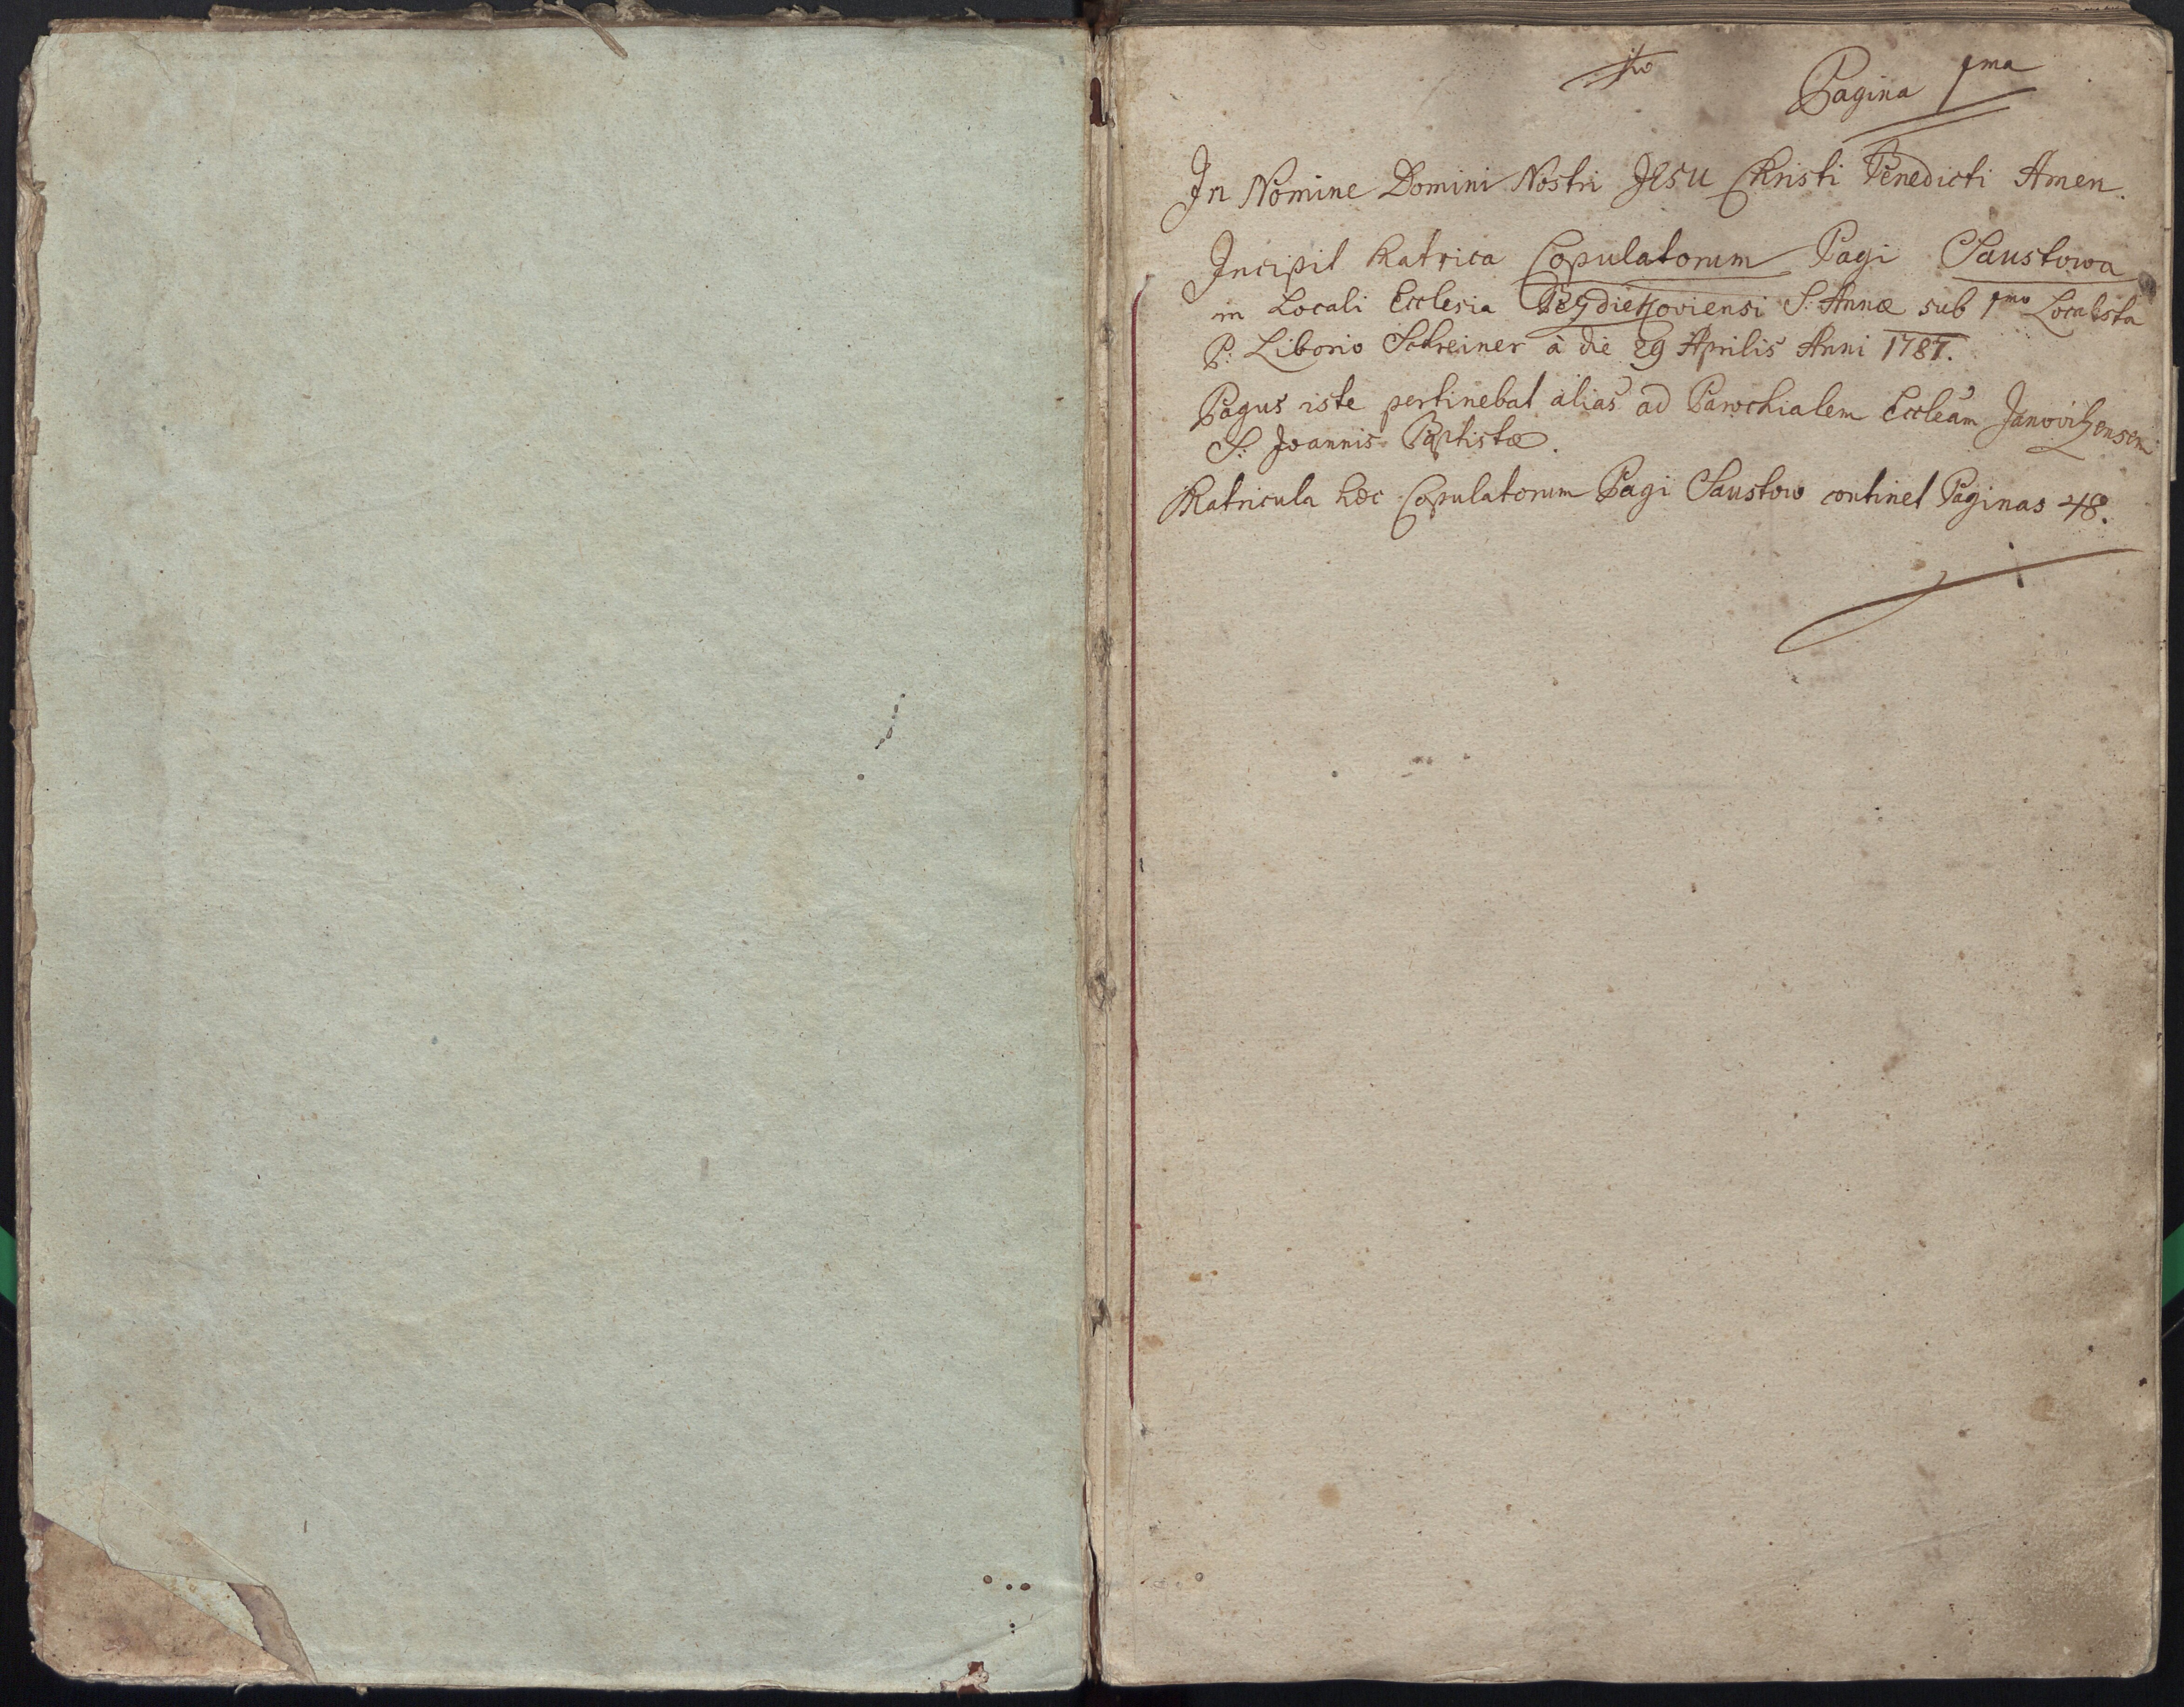 Pagina 1ma
In Nomine Domini Nostri JESU Christi Benedicti Amen.
Incipit Matrica Copulatorum Pagi Saustowa
in Locali Ecclesia BeydieKoviensi S: Annæ sub 1mo Localista
P: Liborio Schreiner à die 29 Aprilis Anni 1787.
Pagus iste pertinebat alias ad Parochialem Eccleam Janovitzensem
S: Joannis Baptistæ.
Matricula hæc Copulatorum Pagi Saustow continet Paginas 48.